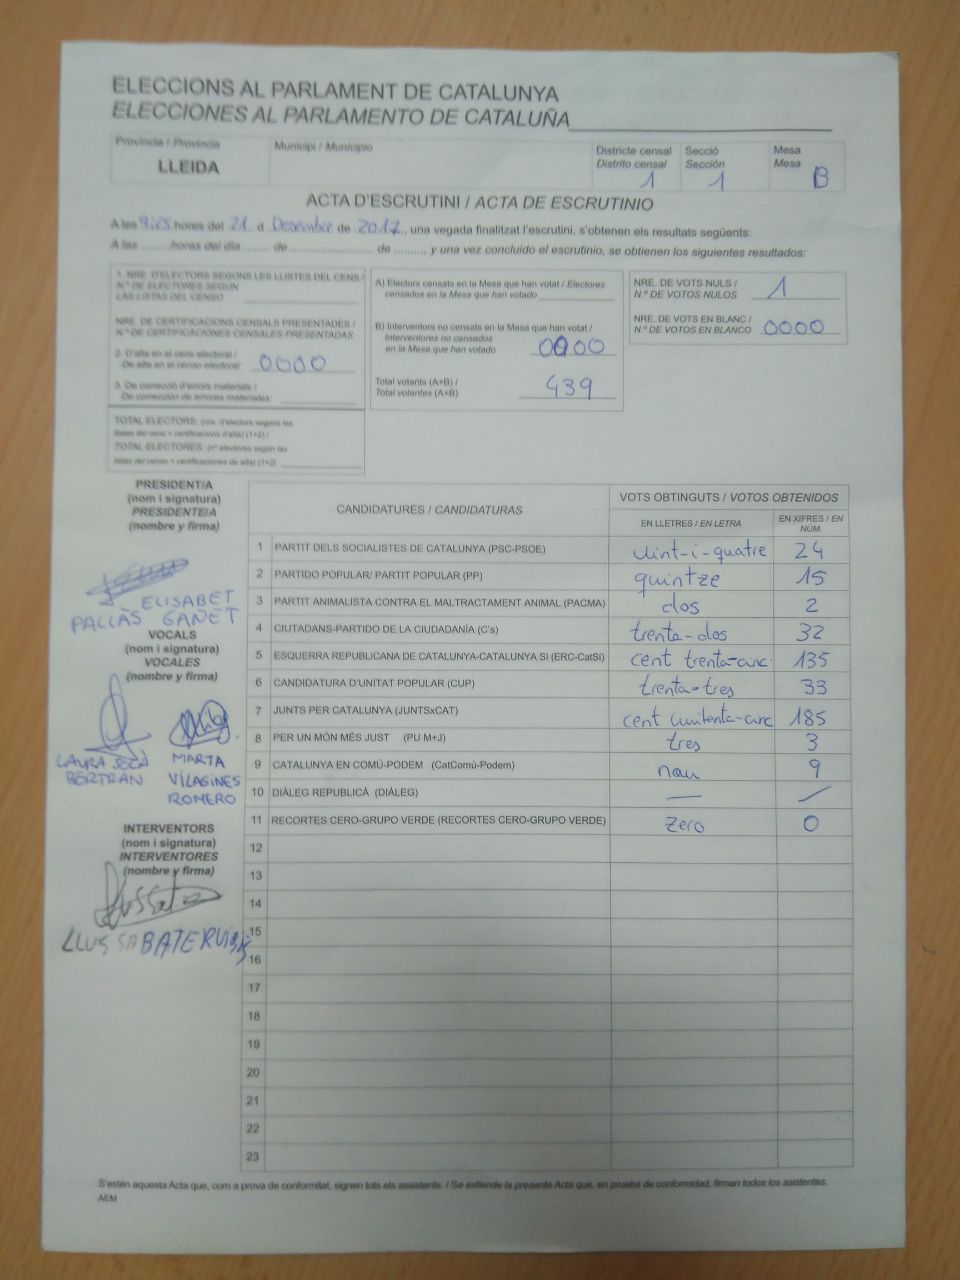 ELECCIONS AL PARLAMENT DE CATALUNYA
ELECCIONES AL PARLAMENTO DE CATALUÑA
Província / Provincia
LLEIDA
Municipi / Municipio
Districte censal
Distrito censal
1
Secció
Sección
1
Mesa
Mesa
B
ACTA D'ESCRUTINI / ACTA DE ESCRUTINIO
A les 9:25 hores del 21 d Desembre de 2017, una vegada finalitzat l'escrutini, s'obtenen els resultats següents:
A las ......... hores del día ....... de ........................ de ........, y una vez concluido el escrutinio, se obtienen los siguientes resultados:
1. NRE. D'ELECTORS SEGONS LES LLISTES DEL CENS /
N.º DE ELECTORES SEGÚN
LAS LISTAS DEL CENSO
NRE. DE CERTIFICACIONS CENSALS PRESENTADES /
N.º DE CERTIFICACIONES CENSALES PRESENTADAS
2. D'alta en el cens electoral /
De alta en el censo electoral: 0000
3. De correcció d'errors materials /
De corrección de errores materiales:
TOTAL ELECTORS: (nre. d'electors segons les
llistes del cens + certificacions d'alta) (1+2) /
TOTAL ELECTORES: (nº electores según las
listas del censo + certificaciones de alta) (1+2)
A) Electors censats en la Mesa que han votat / Electores
censados en la Mesa que han votado
B) Interventors no censats en la Mesa que han votat /
Interventores no censados
en la Mesa que han votado 0000
Total votants (A+B) /
Total votantes (A+B) 439
NRE. DE VOTS NULS /
N.º DE VOTOS NULOS 1
NRE. DE VOTS EN BLANC /
N.º DE VOTOS EN BLANCO 0000
PRESIDENT/A
(nom i signatura)
PRESIDENTE/A
(nombre y firma)
ELISABET
PALLÀS GAÑET
VOCALS
(nom i signatura)
VOCALES
(nombre y firma)
LAURA
BERTRAN
MARTA
VILAGINES
ROMERO
INTERVENTORS
(nom i signatura)
INTERVENTORES
(nombre y firma)
CANDIDATURES / CANDIDATURAS
VOTS OBTINGUTS / VOTOS OBTENIDOS
EN LLETRES / EN LETRA
EN XIFRES / EN NÚM.
1 PARTIT DELS SOCIALISTES DE CATALUNYA (PSC-PSOE) vint-i-quatre 24
2 PARTIDO POPULAR/ PARTIT POPULAR (PP) quintze 15
3 PARTIT ANIMALISTA CONTRA EL MALTRACTAMENT ANIMAL (PACMA) dos 2
4 CIUTADANS-PARTIDO DE LA CIUDADANÍA (C's) trenta-dos 32
5 ESQUERRA REPUBLICANA DE CATALUNYA-CATALUNYA SI (ERC-CatSI) cent trenta-cinc 135
6 CANDIDATURA D'UNITAT POPULAR (CUP) trenta-tres 33
7 JUNTS PER CATALUNYA (JUNTSxCAT) cent 185
8 PER UN MÓN MÉS JUST (PU M+J) tres 3
9 CATALUNYA EN COMÚ-PODEM (CatComú-Podem) nou 9
10 DIÀLEG REPUBLICÀ (DIÀLEG) — /
11 RECORTES CERO-GRUPO VERDE (RECORTES CERO-GRUPO VERDE) zero 0
12
13
14
15
16
17
18
19
20
21
22
23
S'estén aquesta Acta que, com a prova de conformitat, signen tots els assistents. / Se extiende la presente Acta que, en prueba de conformidad, firman todos los asistentes.
AEM